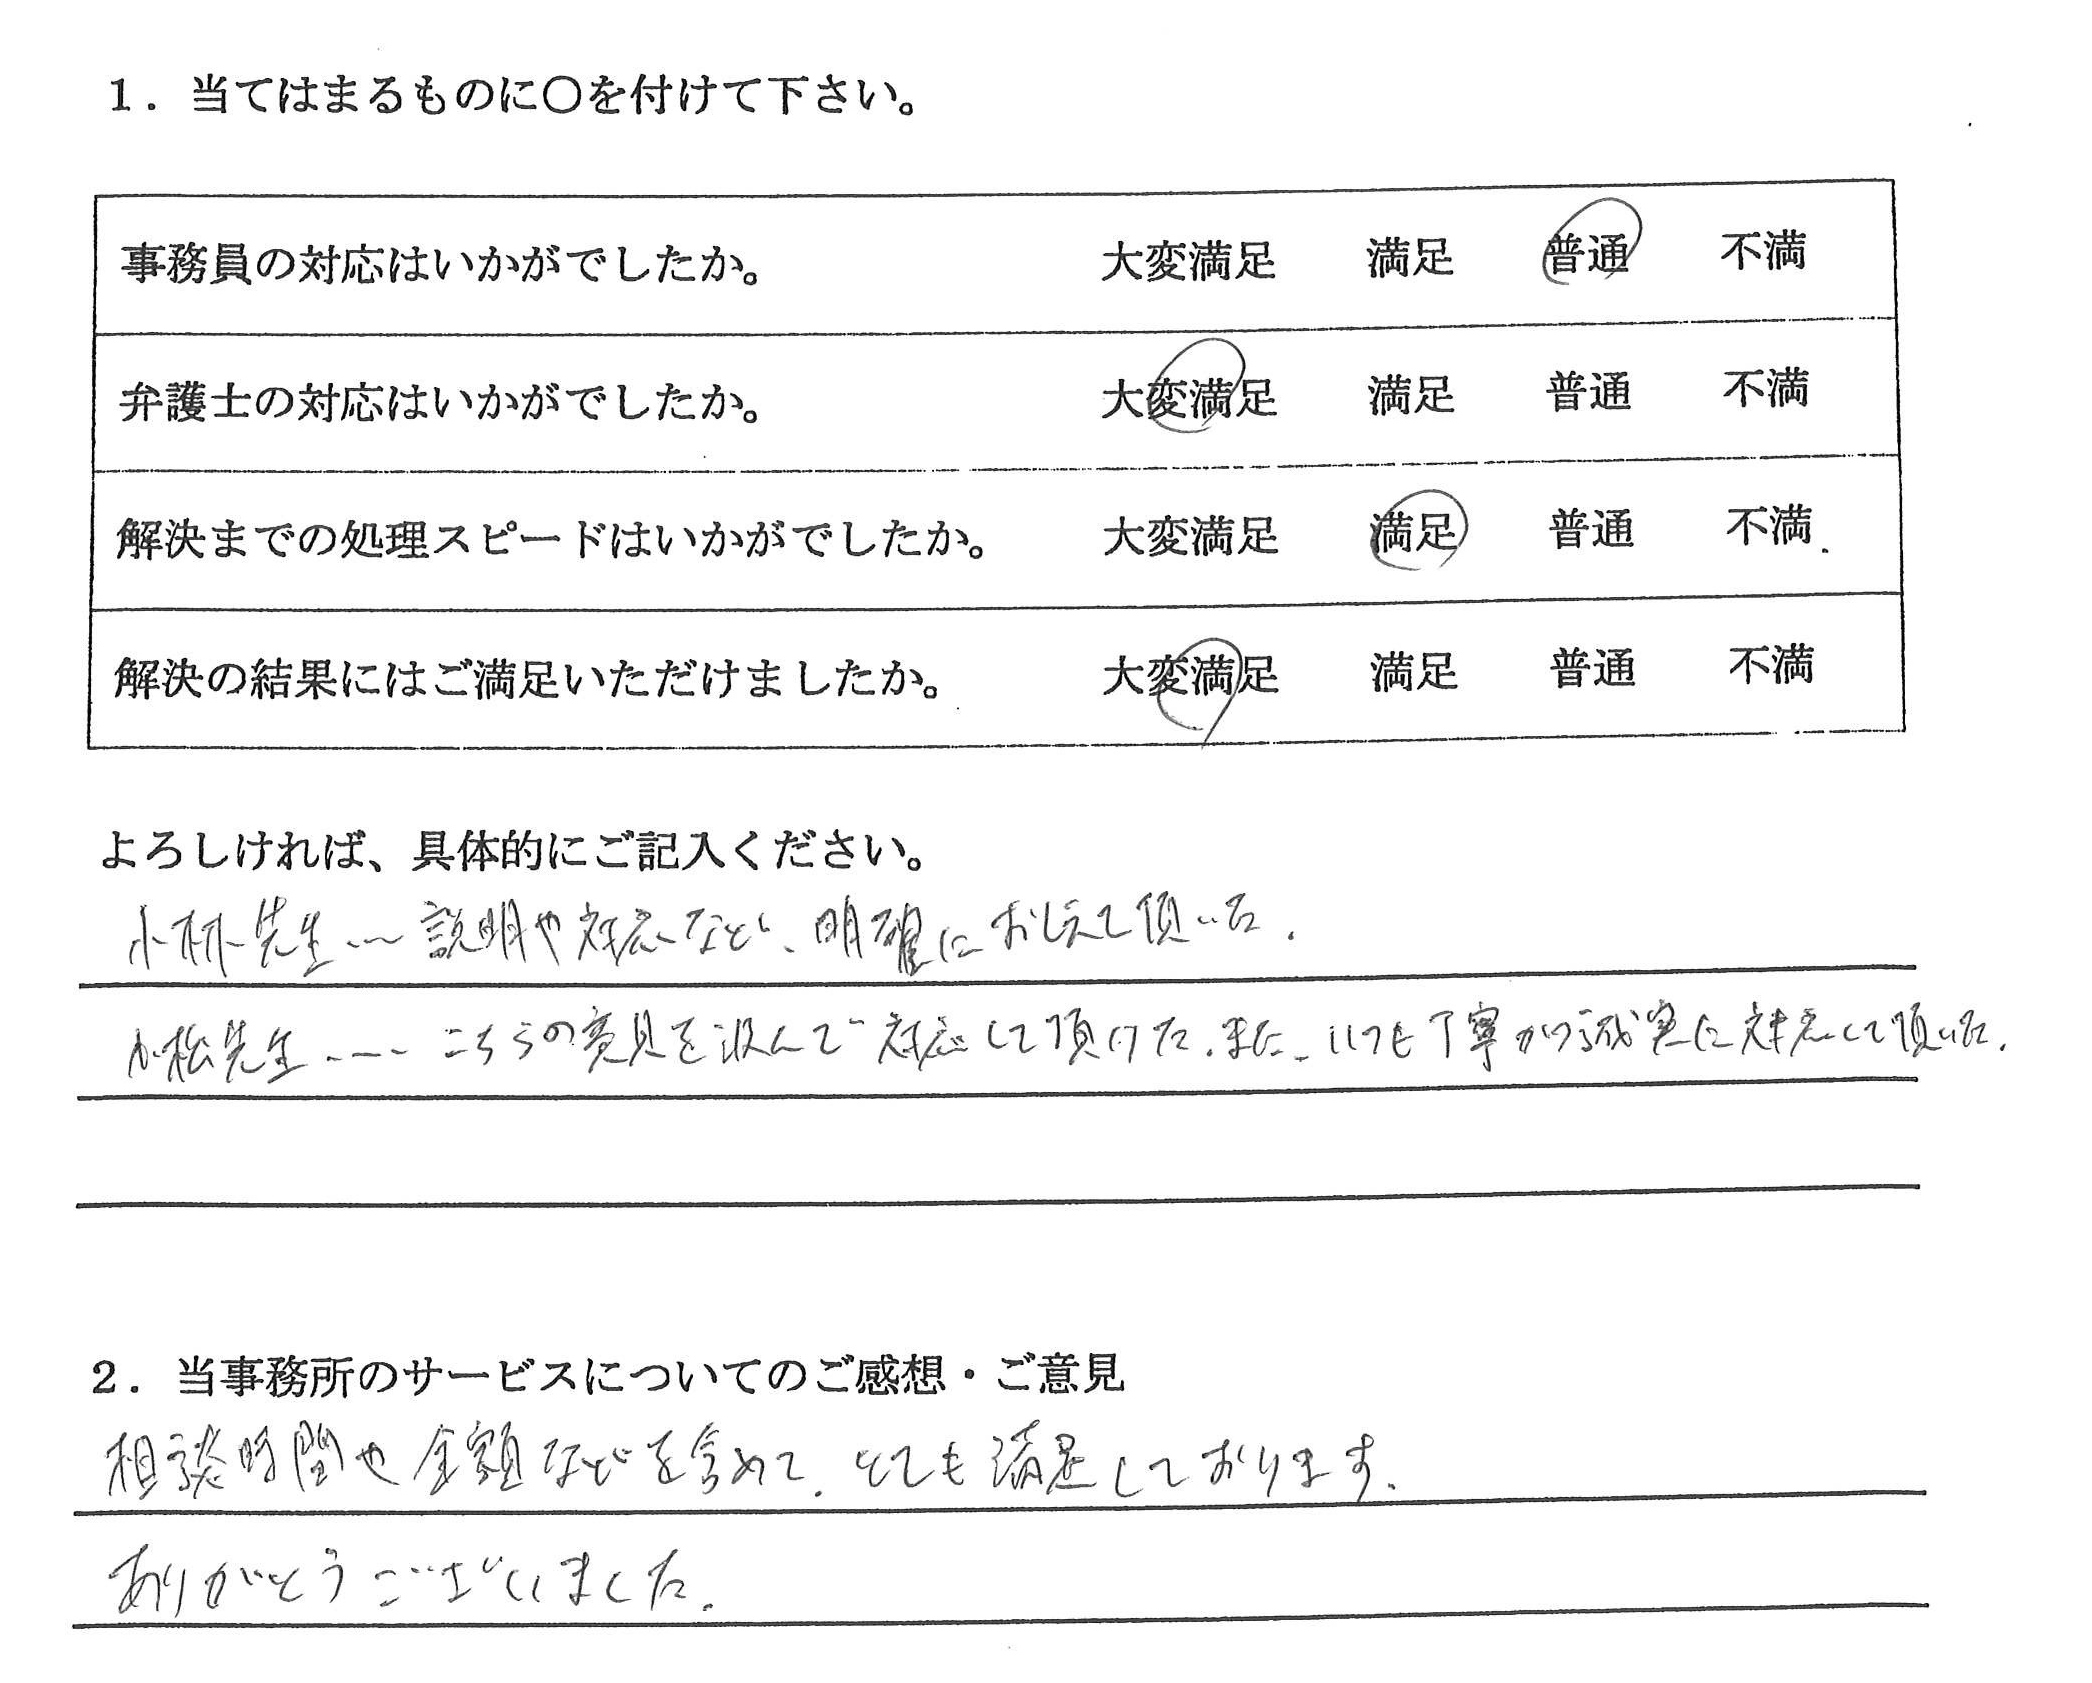 1．当てはまるものに〇を付けて下さい。
事務員の対応はいかがでしたか。 大変満足 満足 普通 不満
弁護士の対応はいかがでしたか。 大変満足 満足 普通 不満
解決までの処理スピードはいかがでしたか。 大変満足 満足 普通 不満
解決の結果にはご満足いただけましたか。 大変満足 満足 普通 不満
よろしければ、具体的にご記入ください。
小林先生…説明や対応など、明確におしえて頂いた.
小松先生….こちらの意見を汲んで対応して頂けた.また、いつも丁寧かつ誠実に対応して頂いた.
2．当事務所のサービスについてのご感想・ご意見
相談時間や金額などを含めて、とても満足しております.
ありがとうございました.